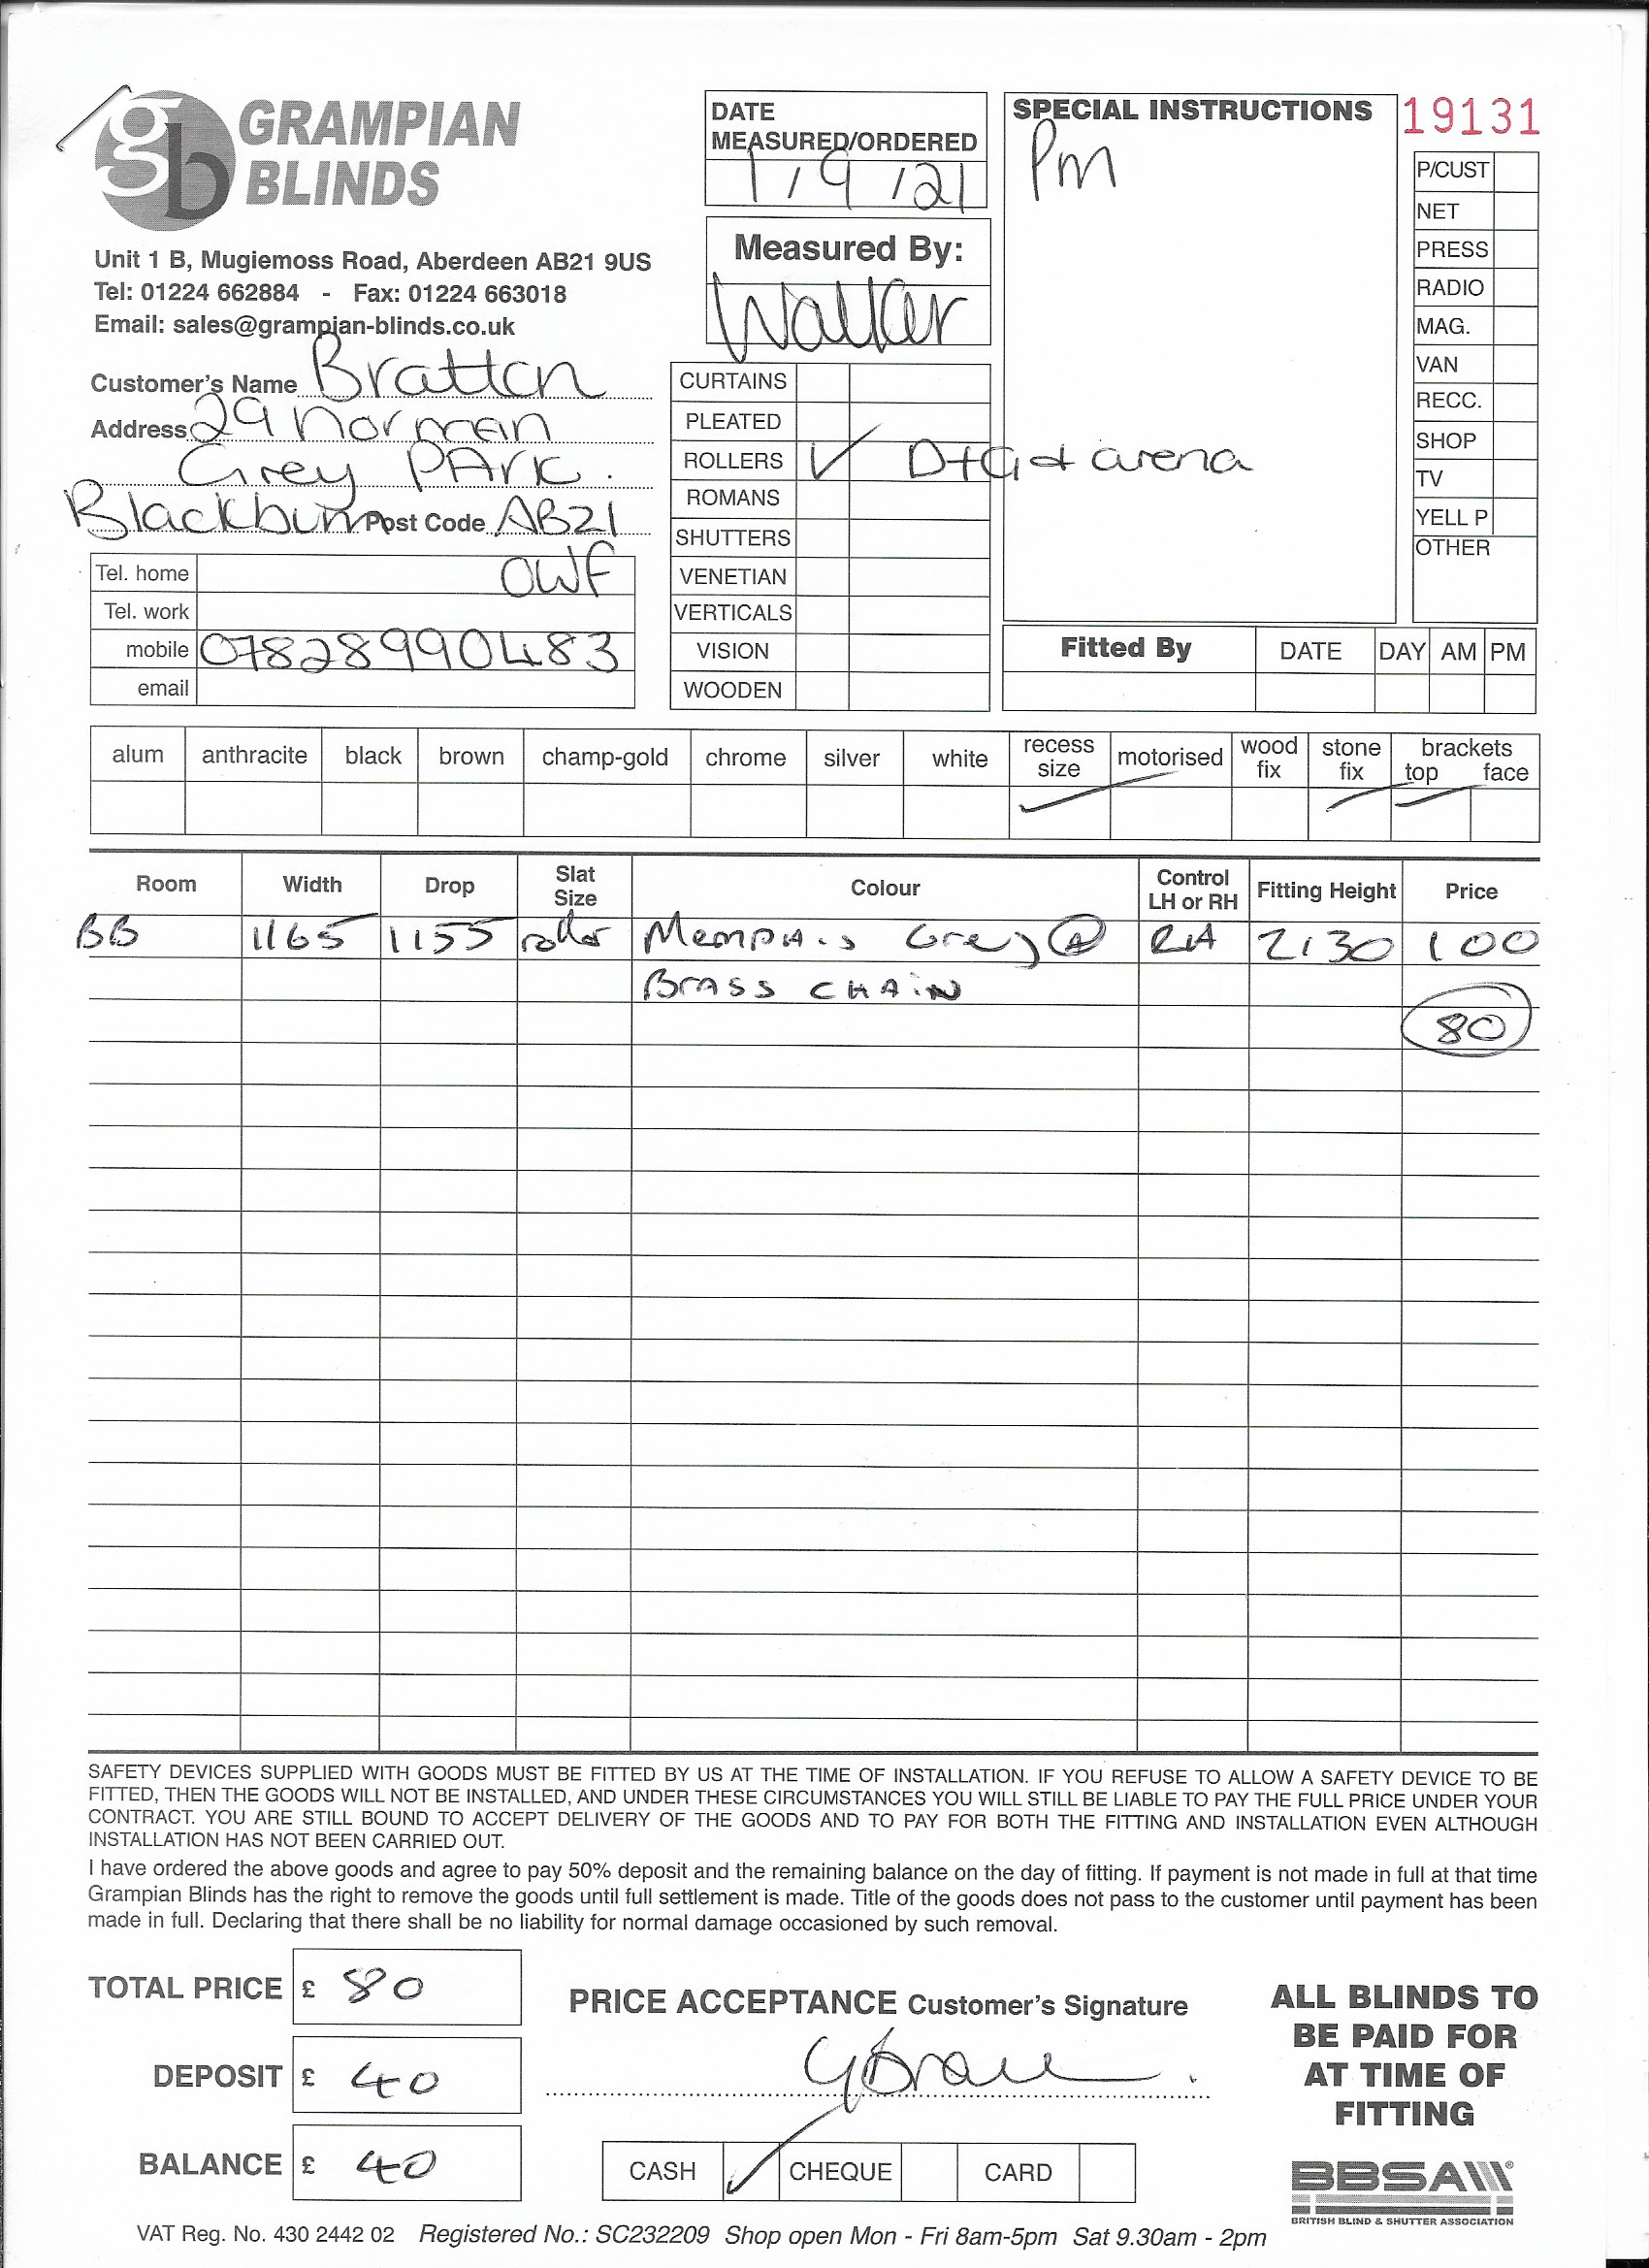 gb GRAMPIAN
BLINDS
Unit 1 B, Mugiemoss Road, Aberdeen AB21 9US
Tel: 01224 662884 - Fax: 01224 663018
Email: sales@grampian-blinds.co.uk
Customer's Name Bratton
Address 29 Norman
Grey PArk.
Blackburn Post Code AB21
0WF
Tel. home
Tel. work
mobile 07828990483
email
DATE
MEASURED/ORDERED
1/9/21
Measured By:
Walker
CURTAINS
PLEATED
ROLLERS ✓ D+G et arena
ROMANS
SHUTTERS
VENETIAN
VERTICALS
VISION
WOODEN
SPECIAL INSTRUCTIONS
Pm
19131
P/CUST
NET
PRESS
RADIO
MAG.
VAN
RECC.
SHOP
TV
YELL P
OTHER
Fitted By DATE DAY AM PM
alum anthracite black brown champ-gold chrome silver white recess size motorised wood fix stone fix brackets top face
Room Width Drop Slat Size Colour Control LH or RH Fitting Height Price
BB 1165 1155 roller Memphis Grey A RH 2130 100
Brass CHAiN
80
SAFETY DEVICES SUPPLIED WITH GOODS MUST BE FITTED BY US AT THE TIME OF INSTALLATION. IF YOU REFUSE TO ALLOW A SAFETY DEVICE TO BE
FITTED, THEN THE GOODS WILL NOT BE INSTALLED, AND UNDER THESE CIRCUMSTANCES YOU WILL STILL BE LIABLE TO PAY THE FULL PRICE UNDER YOUR
CONTRACT. YOU ARE STILL BOUND TO ACCEPT DELIVERY OF THE GOODS AND TO PAY FOR BOTH THE FITTING AND INSTALLATION EVEN ALTHOUGH
INSTALLATION HAS NOT BEEN CARRIED OUT.
I have ordered the above goods and agree to pay 50% deposit and the remaining balance on the day of fitting. If payment is not made in full at that time
Grampian Blinds has the right to remove the goods until full settlement is made. Title of the goods does not pass to the customer until payment has been
made in full. Declaring that there shall be no liability for normal damage occasioned by such removal.
TOTAL PRICE £ 80
DEPOSIT £ 40
BALANCE £ 40
PRICE ACCEPTANCE Customer's Signature
CASH ✓ CHEQUE CARD
ALL BLINDS TO
BE PAID FOR
AT TIME OF
FITTING
BBSA
BRITISH BLIND & SHUTTER ASSOCIATION
VAT Reg. No. 430 2442 02 Registered No.: SC232209 Shop open Mon - Fri 8am-5pm Sat 9.30am - 2pm